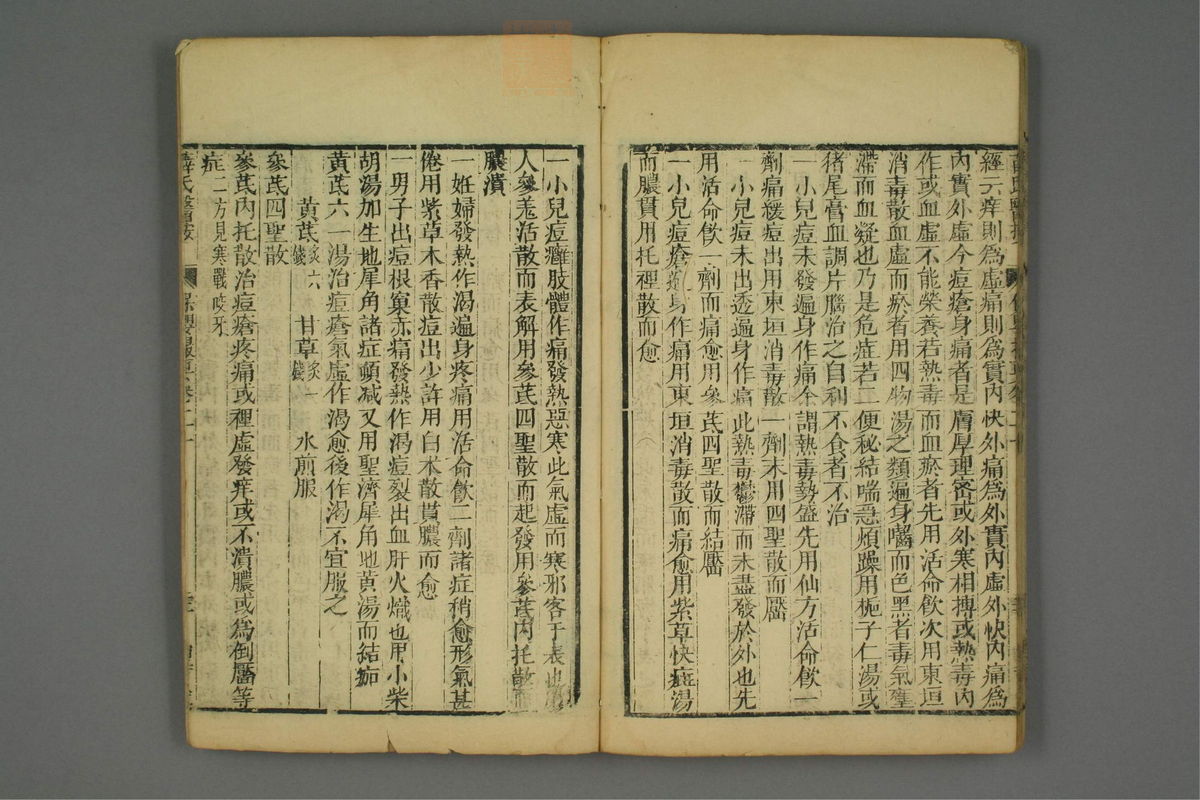 經云痒則爲虛痛則爲實內快外痛爲外實內虛外快內痛爲
內實外虛今痘瘡身痛者是膚厚理密或外寒相搏或熱毒內
作或血虛不能榮養若熱毒而血瘀者先用活命飲次用東垣
消毒散血虛而瘀者用四物湯之類遍身𪙊而色黑者毒氣壅
滯而血凝也乃是危症若二便秘結喘急煩躁用梔子仁湯或
猪尾膏血調片腦治之自利不食者不治
一小兒痘未發遍身作痛余謂熱毒勢盛先用仙方活命飲一
劑痛緩痘出用東垣消毒散一劑末用四聖散而靨
一小兒痘未出透遍身作痛此熱毒鬱滯而未盡發於外也先
用活命飲一劑而痛愈用參芪四聖散而結靨
一小兒痘瘡遍身作痛用東垣消毒散而痛愈用紫草快斑湯
而膿貫用托裡散而愈
一小兒痘癰肢體作痛發熱惡寒此氣虛而寒邪客于表也
人參羌活散而表解用參芪四聖散而起發用參芪內托散而
膿潰
一姙婦發熱作渴遍身疼痛用活命飲二劑諸症稍愈形氣甚
倦用紫草木香散痘出少許用白朮散貫膿而愈
一男子出痘根窠赤痛發熱作渴痘裂出血肝火熾也用小柴
胡湯加生地犀角諸症頓减又用聖濟犀角地黃湯而結痂
黃芪六一湯治痘瘡氣虛作渴愈後作渴不宜服之
黃芪炙六錢 甘草炙一錢 水煎服
參芪四聖散
參芪內托散治痘瘡疼痛或裡虛發痒或不潰膿或爲倒靨等
症二方見寒戰咬牙
薛氏醫按 保嬰撮要卷二十